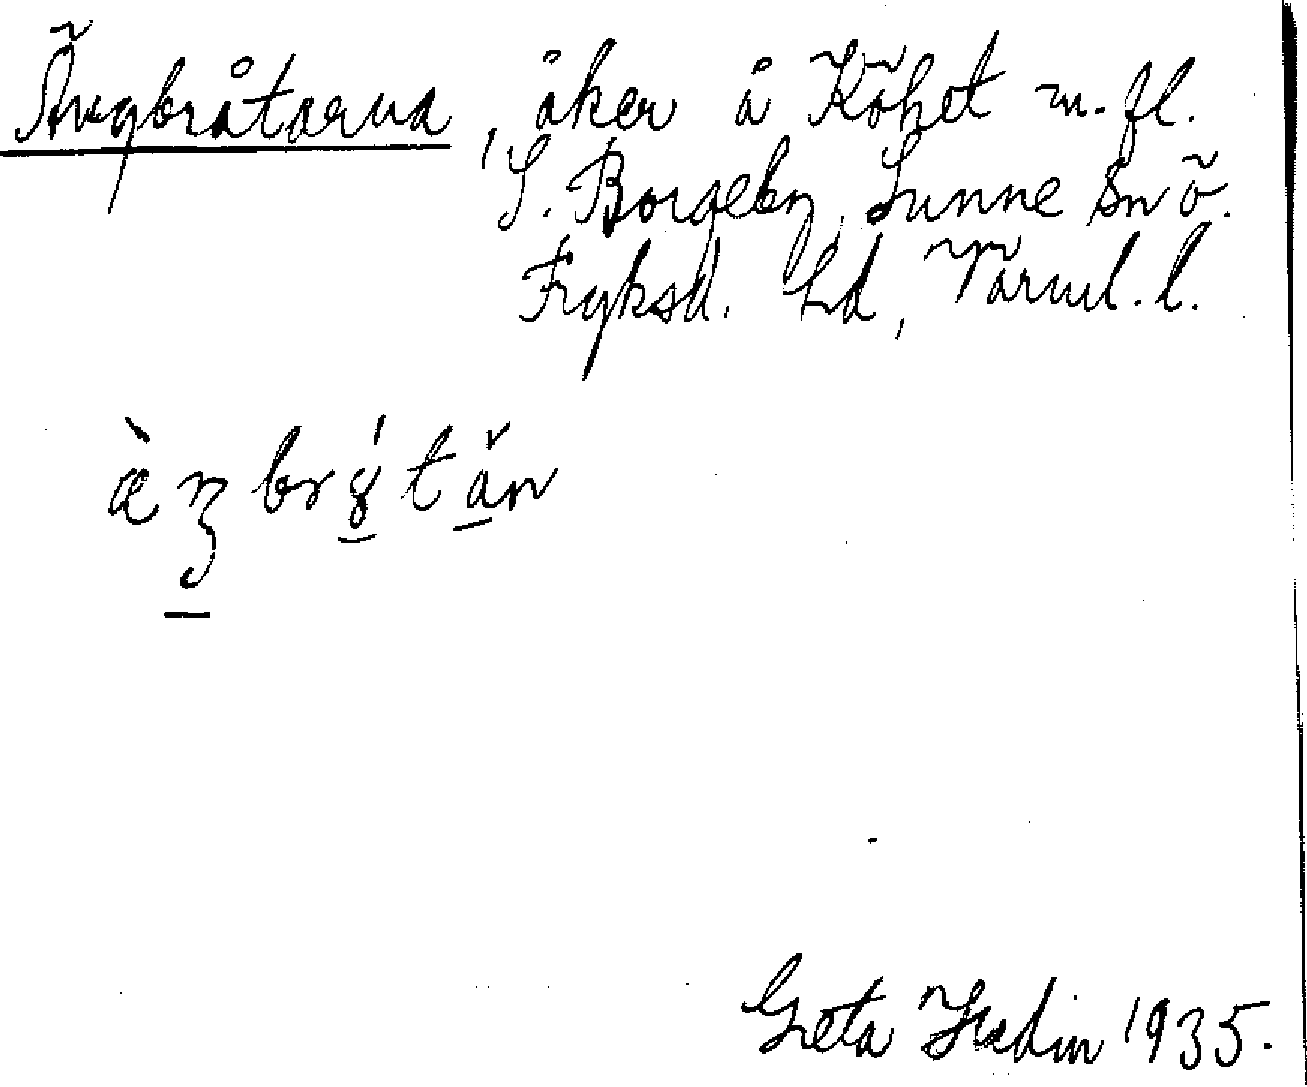 Ängbråtarna, åker å Köhet m. fl.
S. Borgeby, Sunne sn ö.
Fryksd. hd, Värml. l.
æ̀ŋbrýtăn
Greta Hedin 1935.